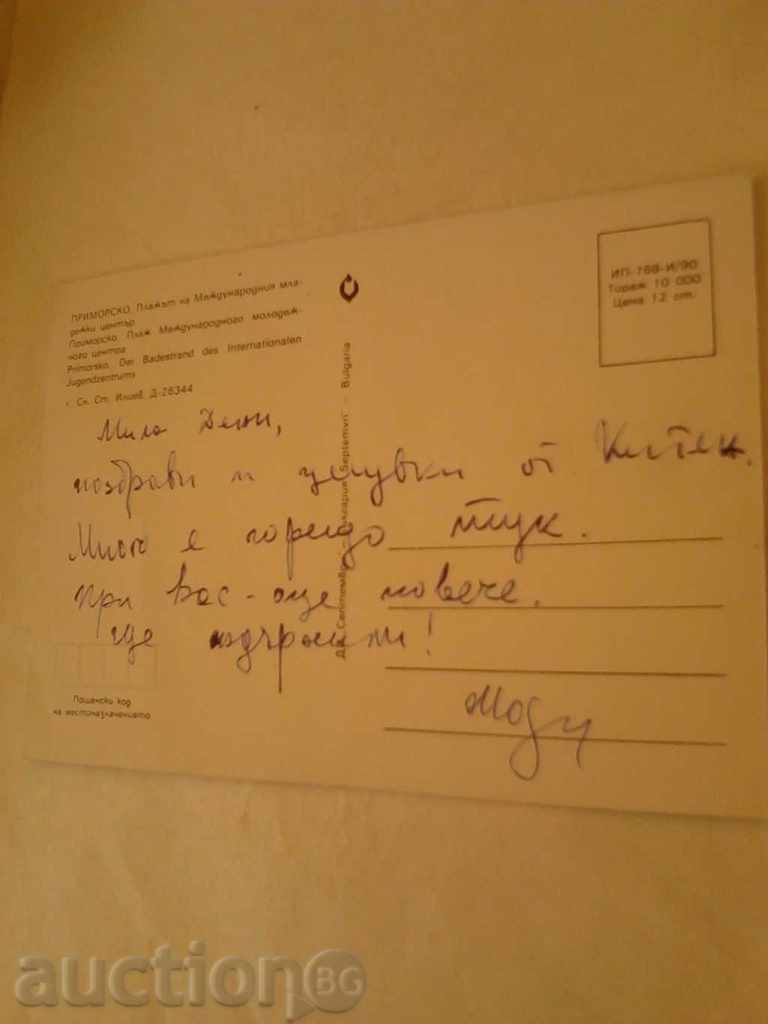 ПРИМОРСКО. Плажът на Международния мла-
дежки център
Приморско. Пляж Международного молодеж-
ного центра
Primorsko. Der Badestrand des Internationalen
Jugendzentrums
Сн. Ст. Илиев Д-26344
ИП-768-И/90
Тираж 10 000
Цена 12 ст.
Септември Septemvri – Bulgaria
Мила Дени,
поздрави и целувки от Китен.
Много е горещо тук.
при вас - още повече.
ще издържим!
Пощенски код
на местоназначението
auctionBG